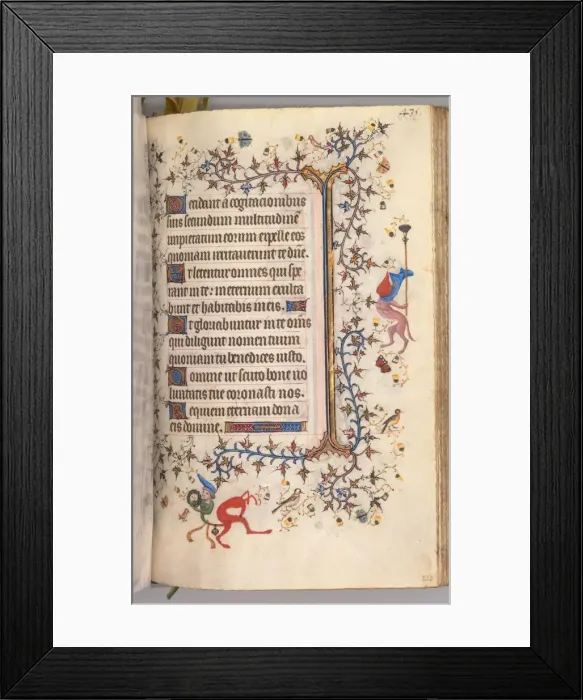 475
Decidant a cogitacionibus
suis secundum multitudinē
impietatum eorum expelle eos
quoniam irritauerunt te dn̄e.
Et letentur omnes qui spe
rant in te: in eternum exulta
bunt et habitabis in eis. Et
gloriabuntur in te om̄s
qui diligunt nomen tuum
quoniam tu benedices iusto.
Domine ut scuto bone uo
luntatis tue coronasti nos.
Requiem eternam dona
eis domine.